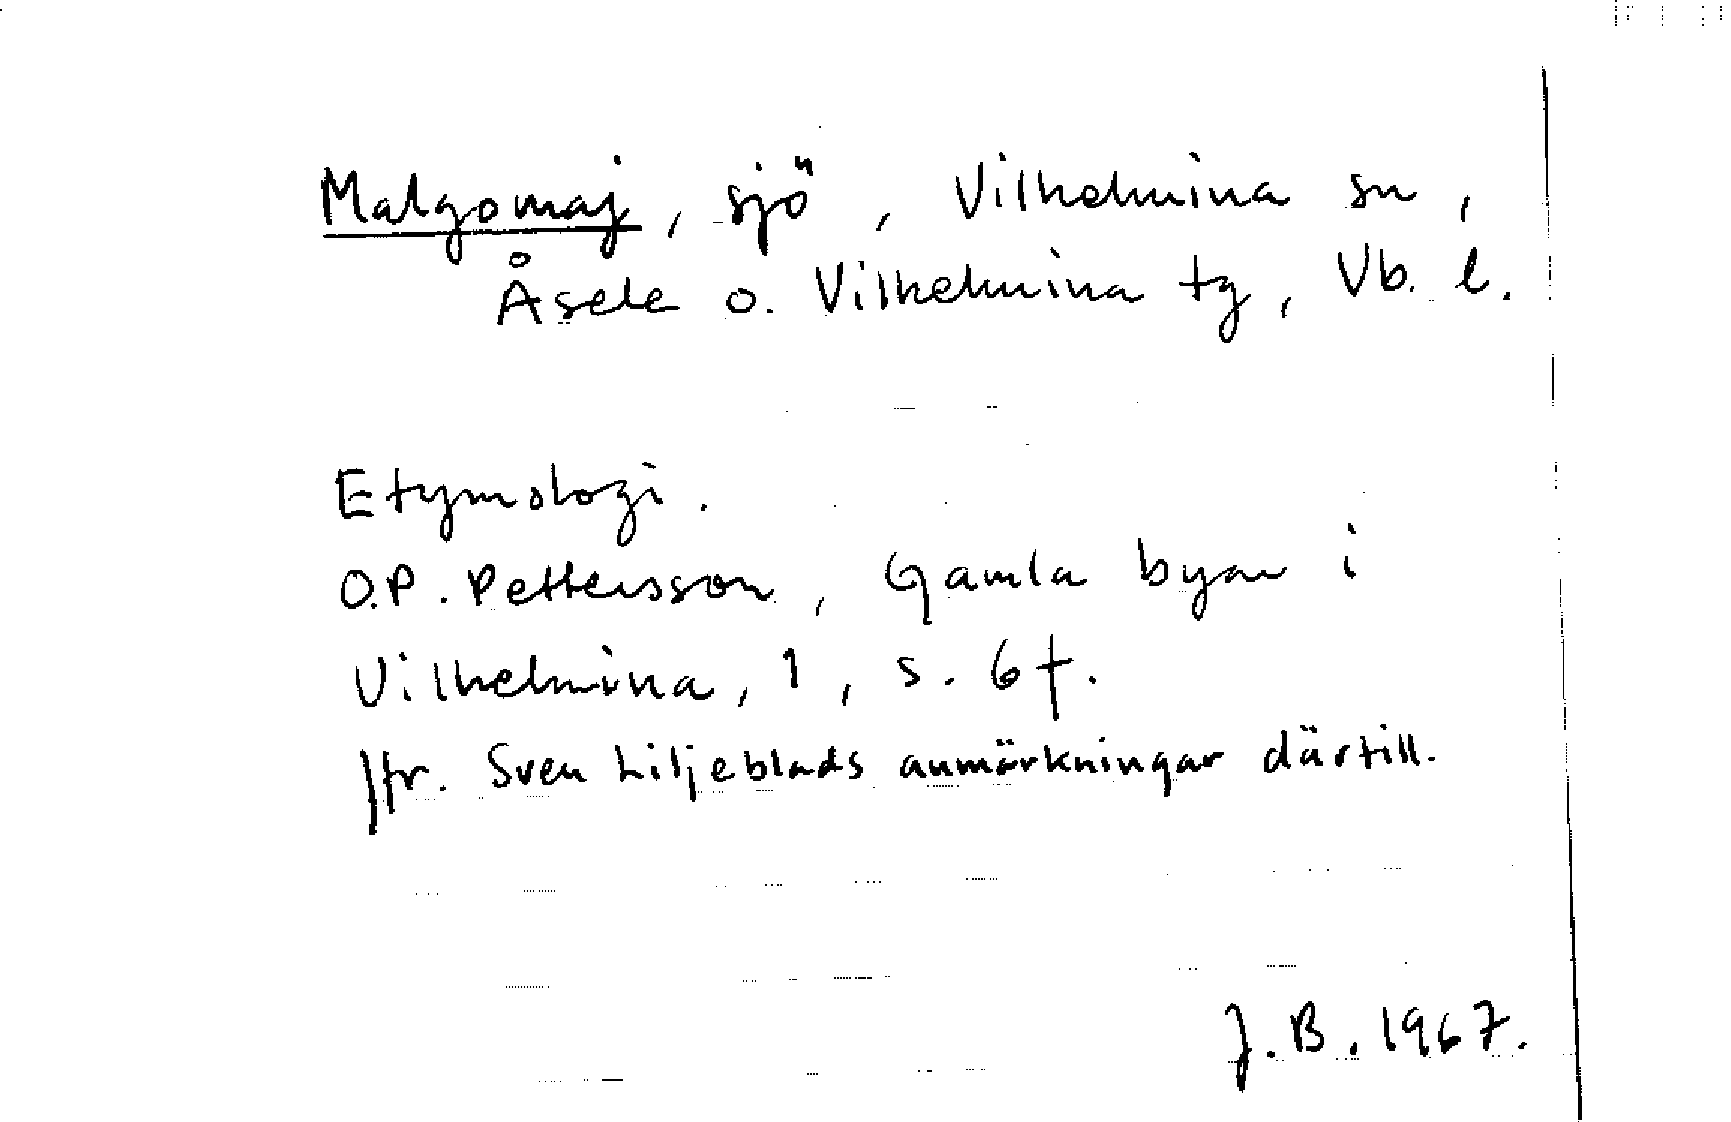 Malgomaj, sjö, Vilhelmina sn,
Åsele o. Vilhelmina tg, Vb. l.
Etymologi.
O.P. Pettersson, Gamla byar i
Vilhelmina, 1, s. 6 f.
Jfr. Sven Liljeblads anmärkningar därtill.
J.B. 1967.